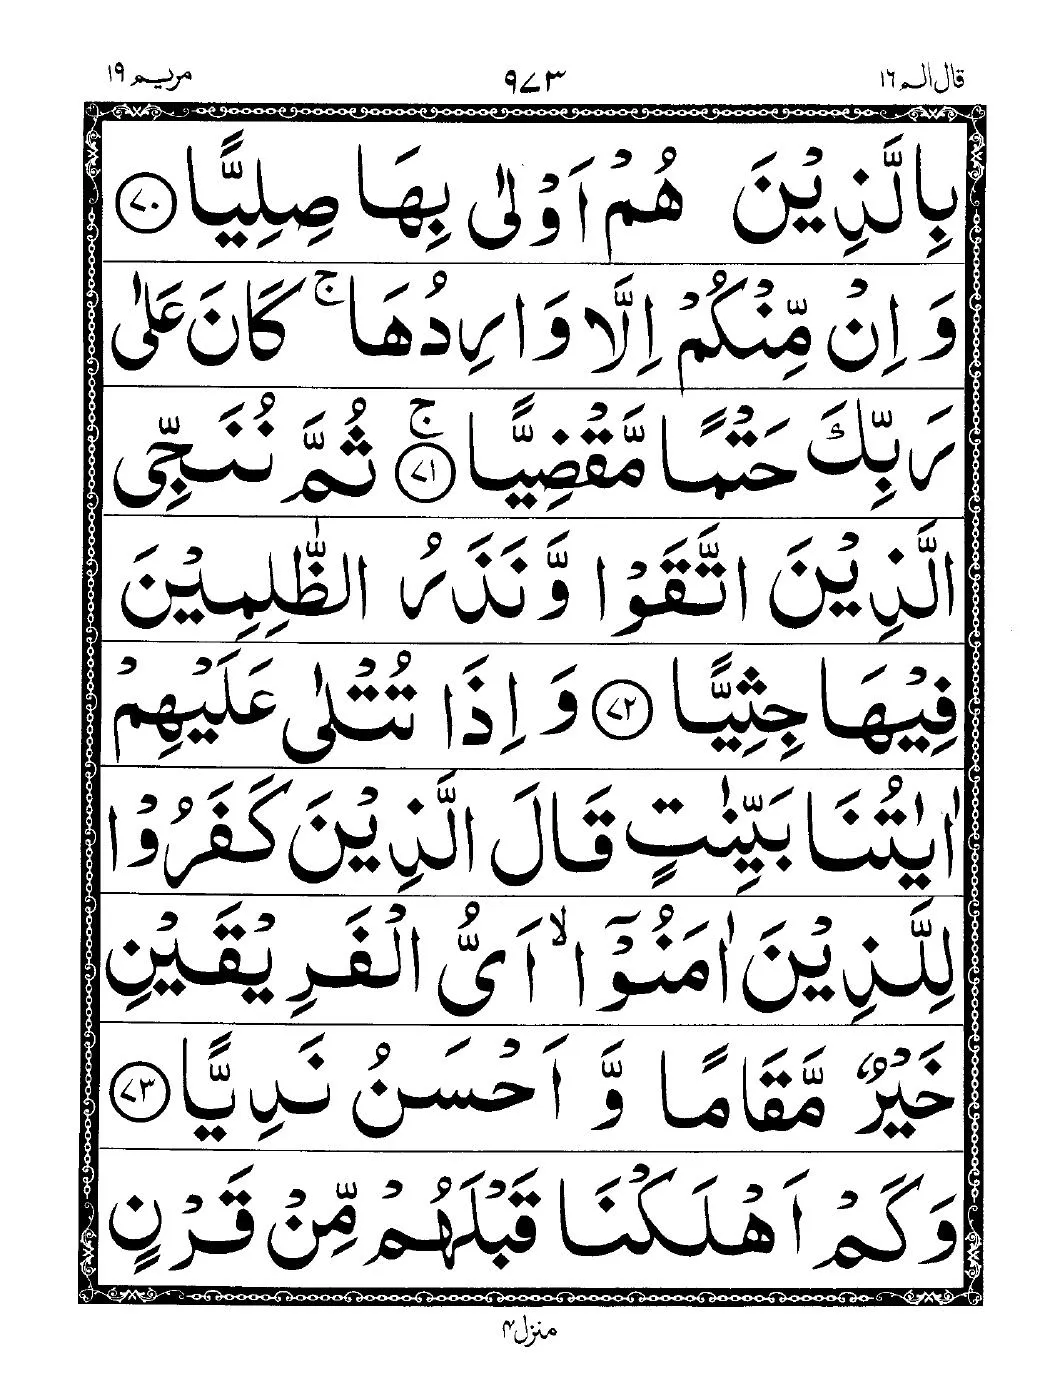 قال الم ١٦
٩٧٣
مریم ١٩
بِالَّذِیْنَ هُمْ اَوْلٰی بِهَا صِلِیًّا ﴿٧٠﴾
وَ اِنْ مِّنْكُمْ اِلَّا وَارِدُهَا ۚ كَانَ عَلٰی
رَبِّكَ حَتْمًا مَّقْضِیًّا ﴿٧١﴾ ۚ ثُمَّ نُنَجِّی
الَّذِیْنَ اتَّقَوْا وَّنَذَرُ الظّٰلِمِیْنَ
فِیْهَا جِثِیًّا ﴿٧٢﴾ وَ اِذَا تُتْلٰی عَلَیْهِمْ
اٰیٰتُنَا بَیِّنٰتٍ قَالَ الَّذِیْنَ كَفَرُوْا
لِلَّذِیْنَ اٰمَنُوْۤا ۙ اَیُّ الْفَرِیْقَیْنِ
خَیْرٌ مَّقَامًا وَّ اَحْسَنُ نَدِیًّا ﴿٧٣﴾
وَكَمْ اَهْلَكْنَا قَبْلَهُمْ مِّنْ قَرْنٍ
منزل ۴